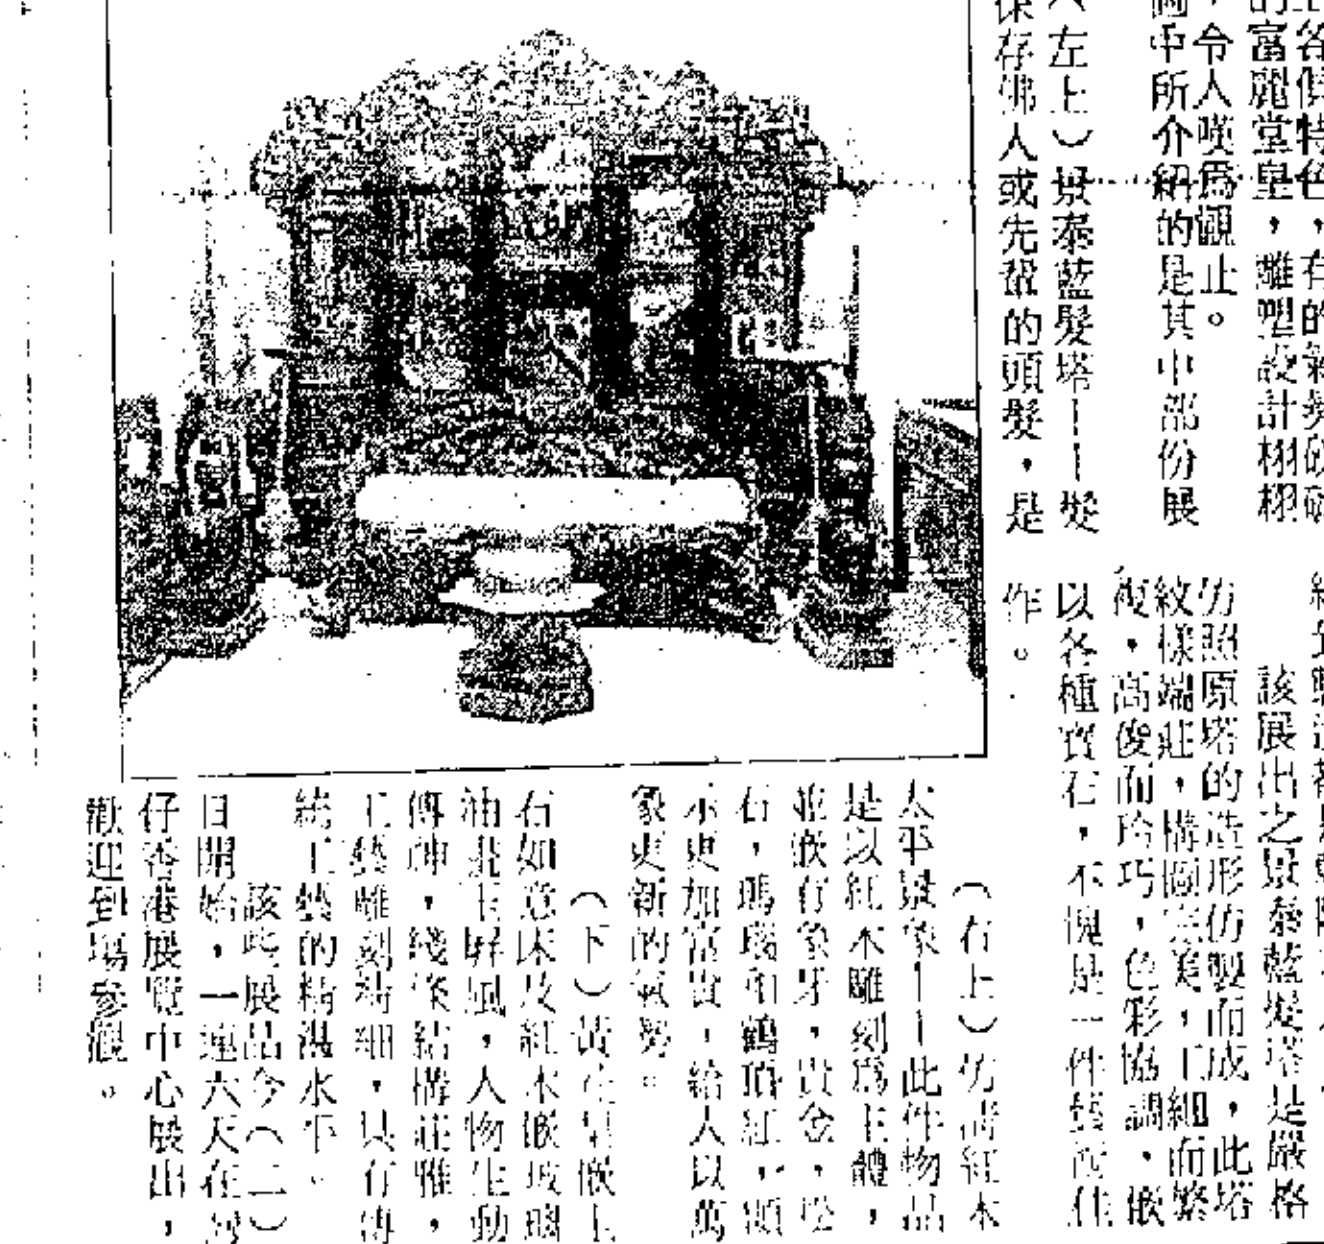 上各俱特色,有的
的富麗堂皇,雕塑設計栩栩
,令人嘆為觀止。
圖中所介紹的是其中部份展
(左上)景泰藍髮塔——髮
保存佛人或先祖的頭髮,是
該展出之景泰藍髮塔是嚴格
仿照原塔的造形仿製而成,此塔
紋樣端莊,構圖完美,工細而繁
複,高俊而玲巧,色彩協調,嵌
以各種寶石,不愧是一件藝術佳
作。
(右上)仿清紅木
太平景象——此件物品
是以紅木雕刻為主體,
並嵌有象牙,貴金,松
石,瑪瑙和鶴頂紅,顯
示更加富貴,給人以萬
象更新的氣勢。
(下)黃花梨嵌玉
石如意床及紅木嵌玻璃
油畫玉屏風,人物生動
傳神,綫條結構莊雅,
工藝雕刻精細,具有傳
統工藝的精湛水平。
該批展品今(二)
日開始,一連六天在灣
仔香港展覽中心展出,
歡迎到場參觀。